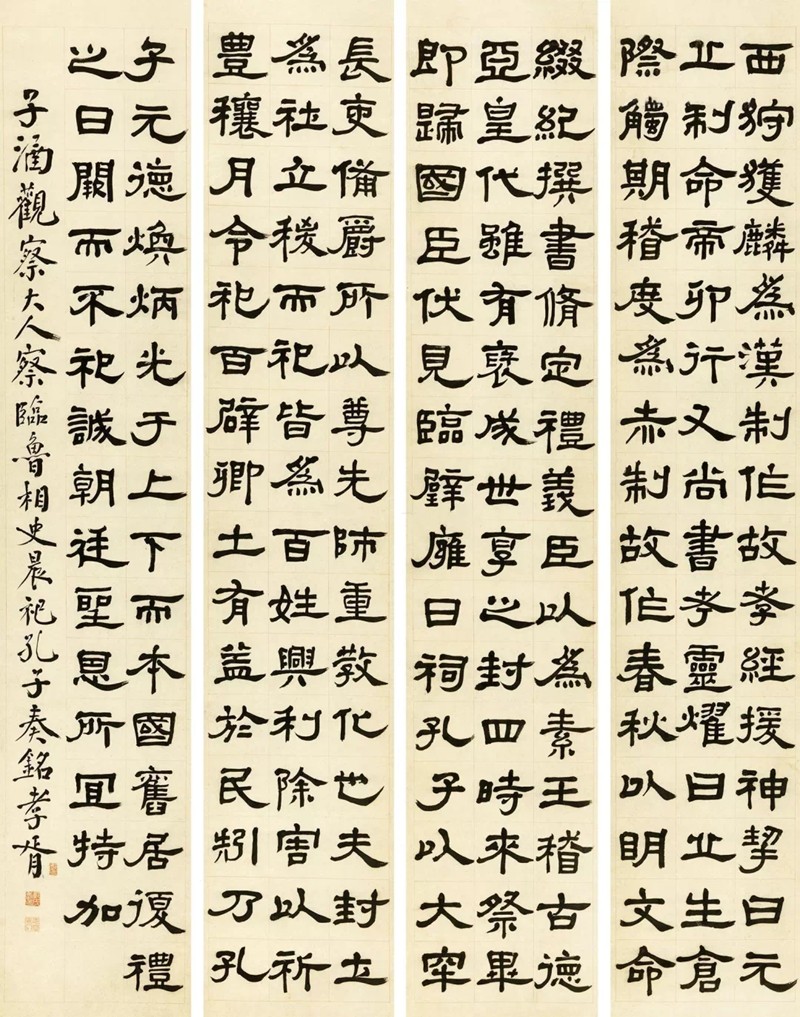 西狩獲麟為漢制作故孝經援神挈曰元
丘制命帝卯行又尚書考靈燿曰丘生倉
際觸期稽度為赤制故作春秋以明文命
綴紀撰書脩定禮義臣以為素王稽古德
亞皇代雖有襃成世享之封四時來祭畢
即歸國臣伏見臨璧廱日祠孔子以大牢
長吏備爵所以尊先師重教化也夫封土
為社立稷而祀皆為百姓興利除害以祈
豐穰月令祀百辟卿士有益於民矧乃孔
子元德煥炳光于上下而本國舊居復禮
之日闕而不祀誠朝廷聖恩所宜特加
子涵觀察大人察臨魯相史晨祀孔子奏銘孝胥